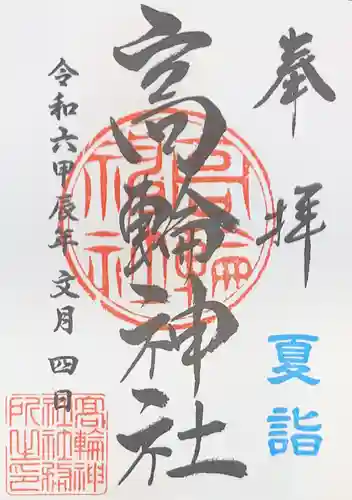 奉拝
夏詣
高輪神社
令和六甲辰年 文月 四日
高輪神社
高輪神
社社務
所之印